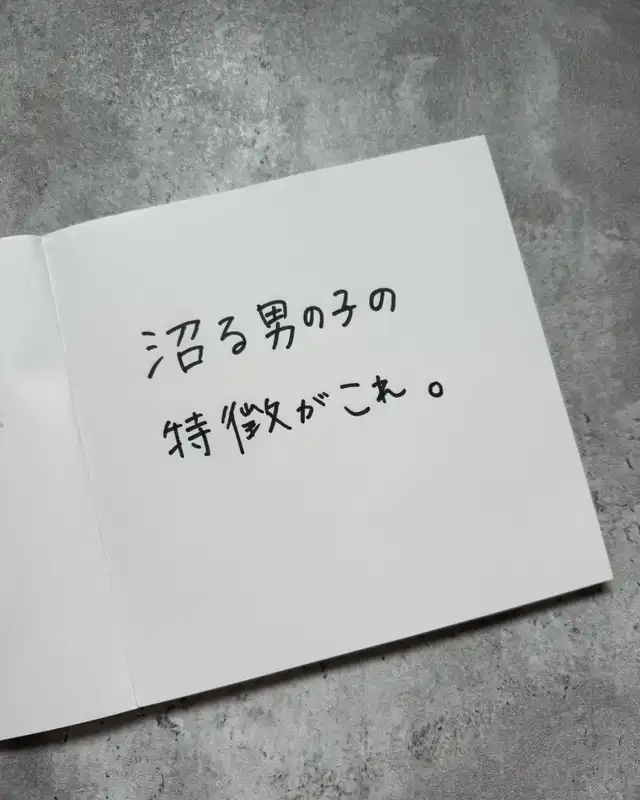 沼る男の子の
特徴がこれ。